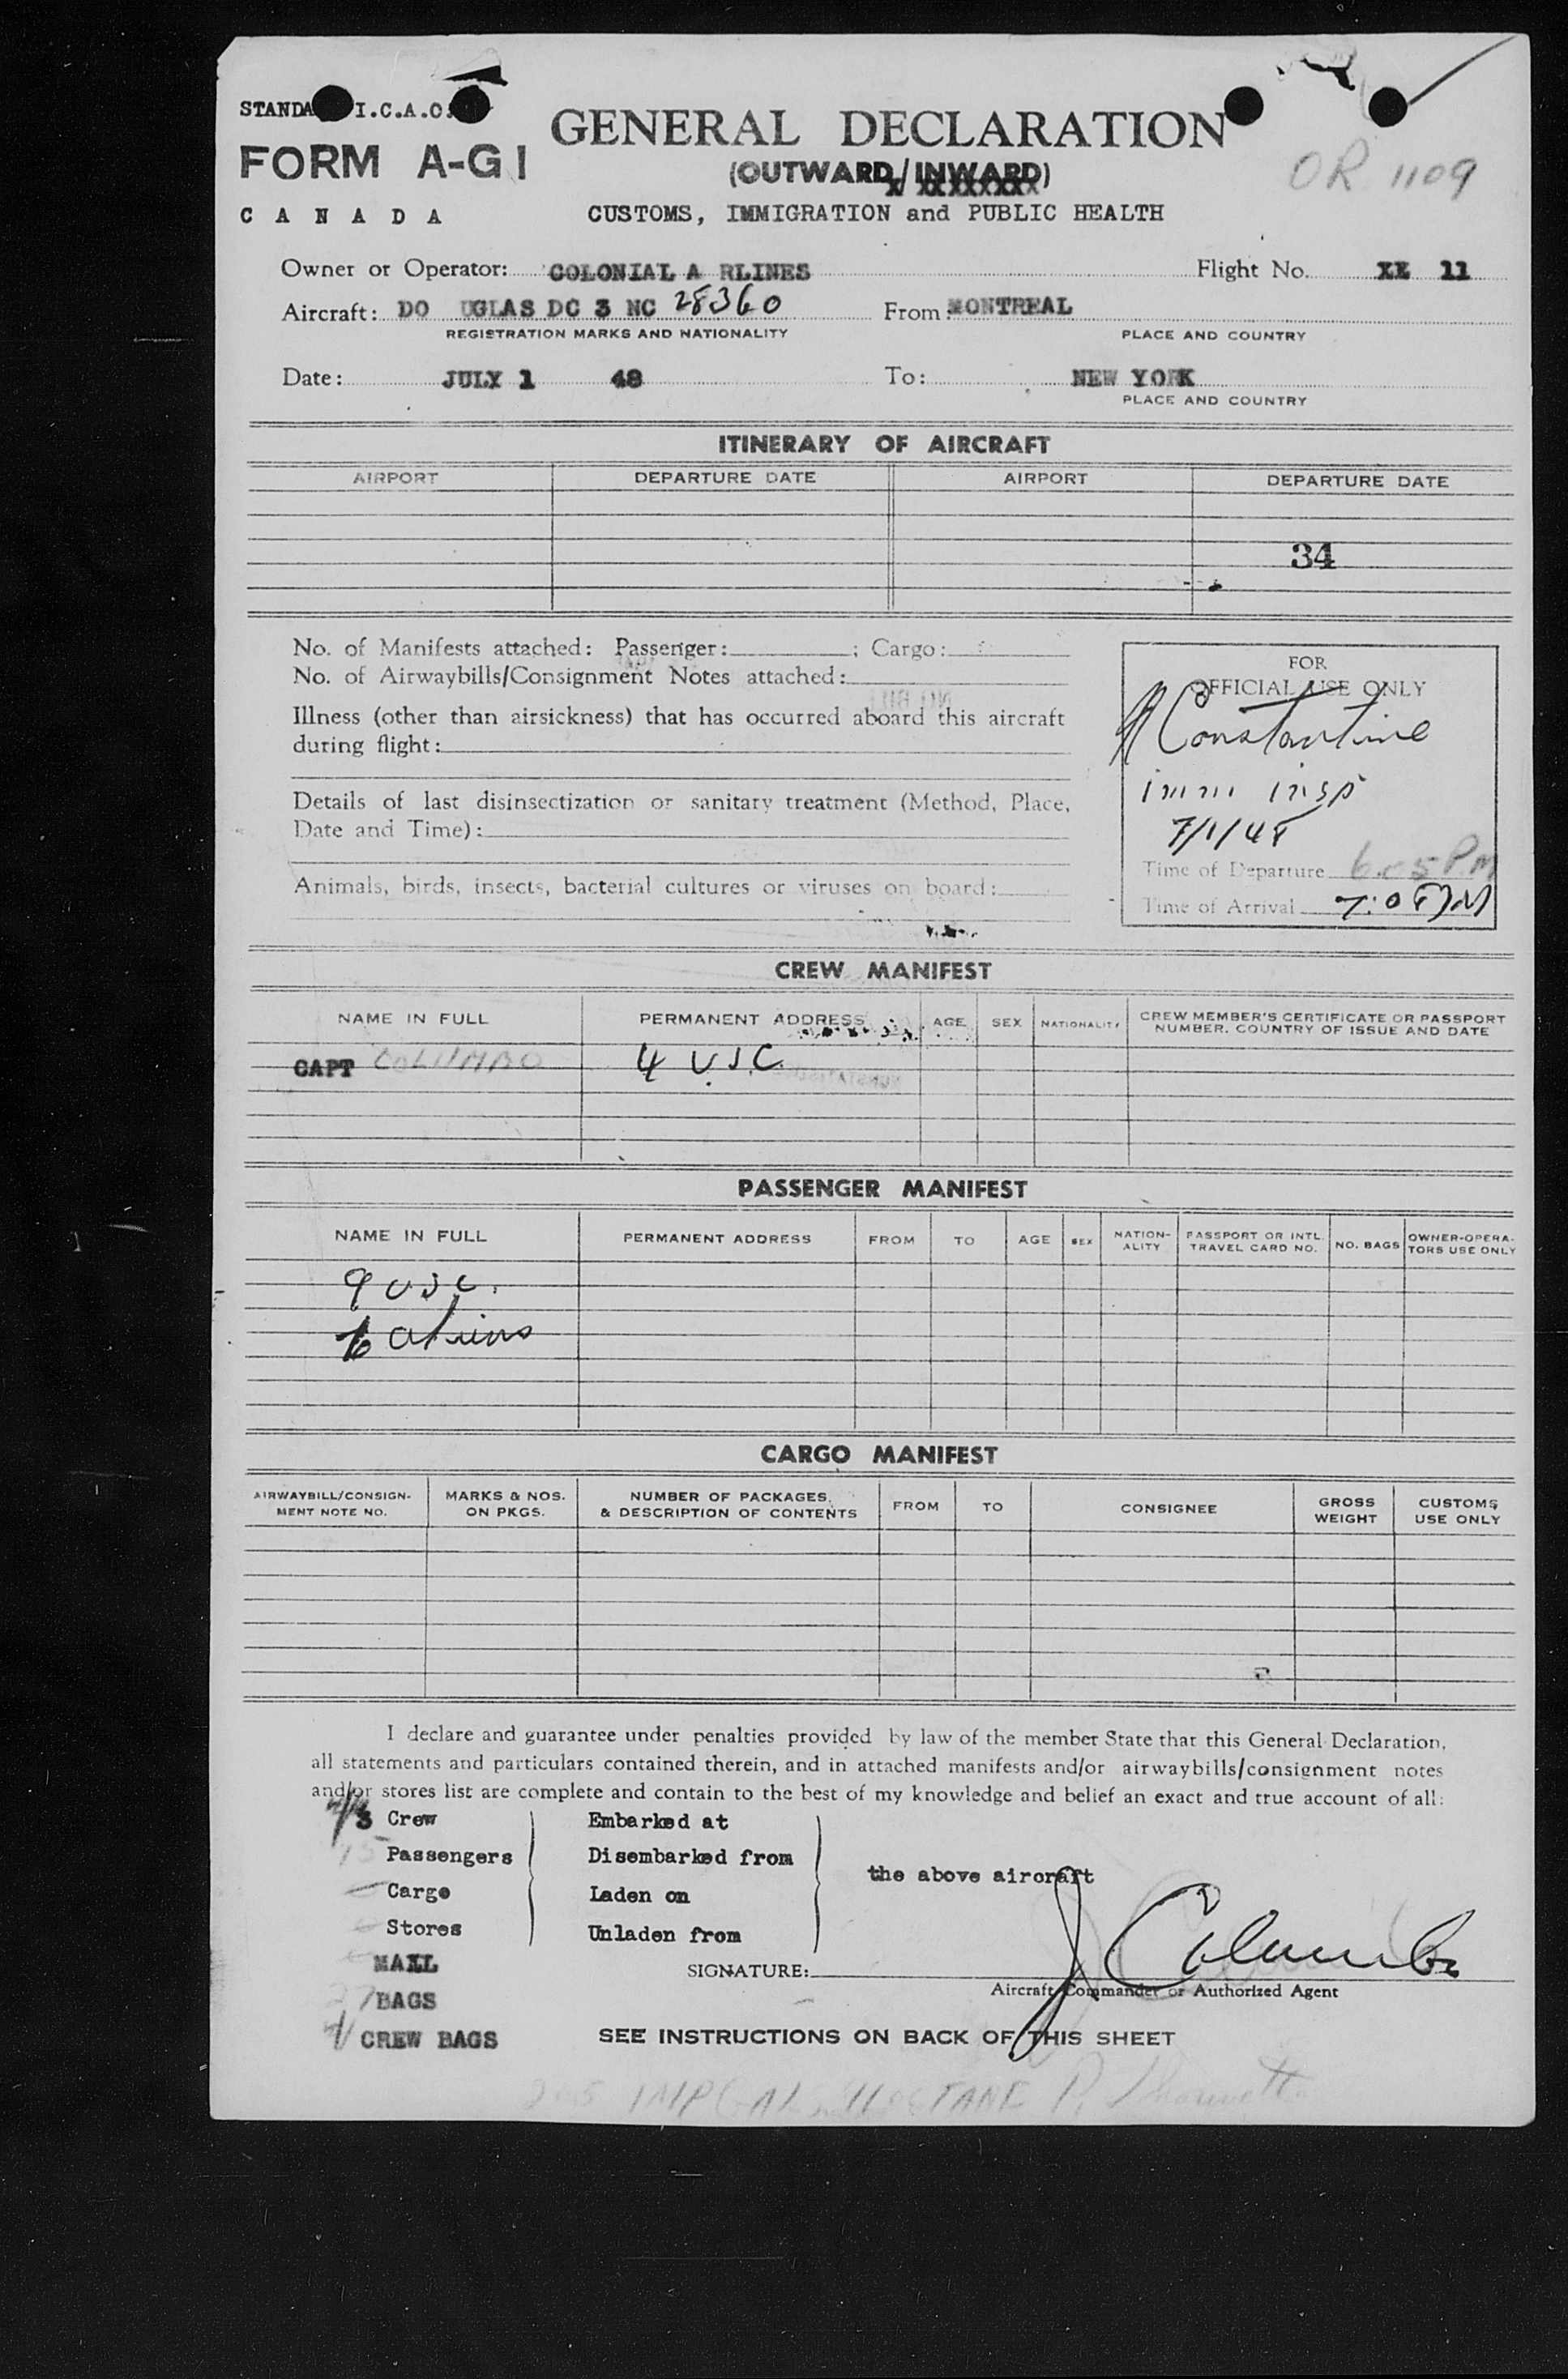 STANDA I.C.A.O.
FORM A-G1
CANADA
GENERAL DECLARATION
(OUTWARD/INWARD)
CUSTOMS, IMMIGRATION and PUBLIC HEALTH
OR 1109
Owner or Operator: COLONIAL A RLINES Flight No. XX 11
Aircraft: DO UGLAS DC 3 NC 28360 From: MONTREAL
REGISTRATION MARKS AND NATIONALITY PLACE AND COUNTRY
Date: JULY 1 48 To: NEW YORK
PLACE AND COUNTRY
ITINERARY OF AIRCRAFT
AIRPORT DEPARTURE DATE AIRPORT DEPARTURE DATE
34
No. of Manifests attached: Passenger: ; Cargo:
No. of Airwaybills/Consignment Notes attached:
Illness (other than airsickness) that has occurred aboard this aircraft
during flight:
Details of last disinsectization or sanitary treatment (Method, Place,
Date and Time):
Animals, birds, insects, bacterial cultures or viruses on board:
FOR
OFFICIAL USE ONLY
Constantine
imm insp
7/1/48
Time of Departure 6.05 P.M
Time of Arrival
CREW MANIFEST
NAME IN FULL PERMANENT ADDRESS AGE SEX NATIONALITY CREW MEMBER'S CERTIFICATE OR PASSPORT
NUMBER, COUNTRY OF ISSUE AND DATE
CAPT COLUMBO 4 U.S.C.
PASSENGER MANIFEST
NAME IN FULL PERMANENT ADDRESS FROM TO AGE SEX NATION-
ALITY PASSPORT OR INTL.
TRAVEL CARD NO. NO. BAGS OWNER-OPERA-
TORS USE ONLY
9 USC.
6 aliens
CARGO MANIFEST
AIRWAYBILL/CONSIGN-
MENT NOTE NO. MARKS & NOS.
ON PKGS. NUMBER OF PACKAGES,
& DESCRIPTION OF CONTENTS FROM TO CONSIGNEE GROSS
WEIGHT CUSTOMS
USE ONLY
I declare and guarantee under penalties provided by law of the member State that this General Declaration,
all statements and particulars contained therein, and in attached manifests and/or airwaybills/consignment notes
and/or stores list are complete and contain to the best of my knowledge and belief an exact and true account of all:
Crew Embarked at
15 Passengers Disembarked from
the above aircraft
Cargo Laden on
Stores Unladen from
MAIL
SIGNATURE: J Columbo
Aircraft Commander or Authorized Agent
BAGS
CREW BAGS
SEE INSTRUCTIONS ON BACK OF THIS SHEET
IMP GAL OCTANE P.